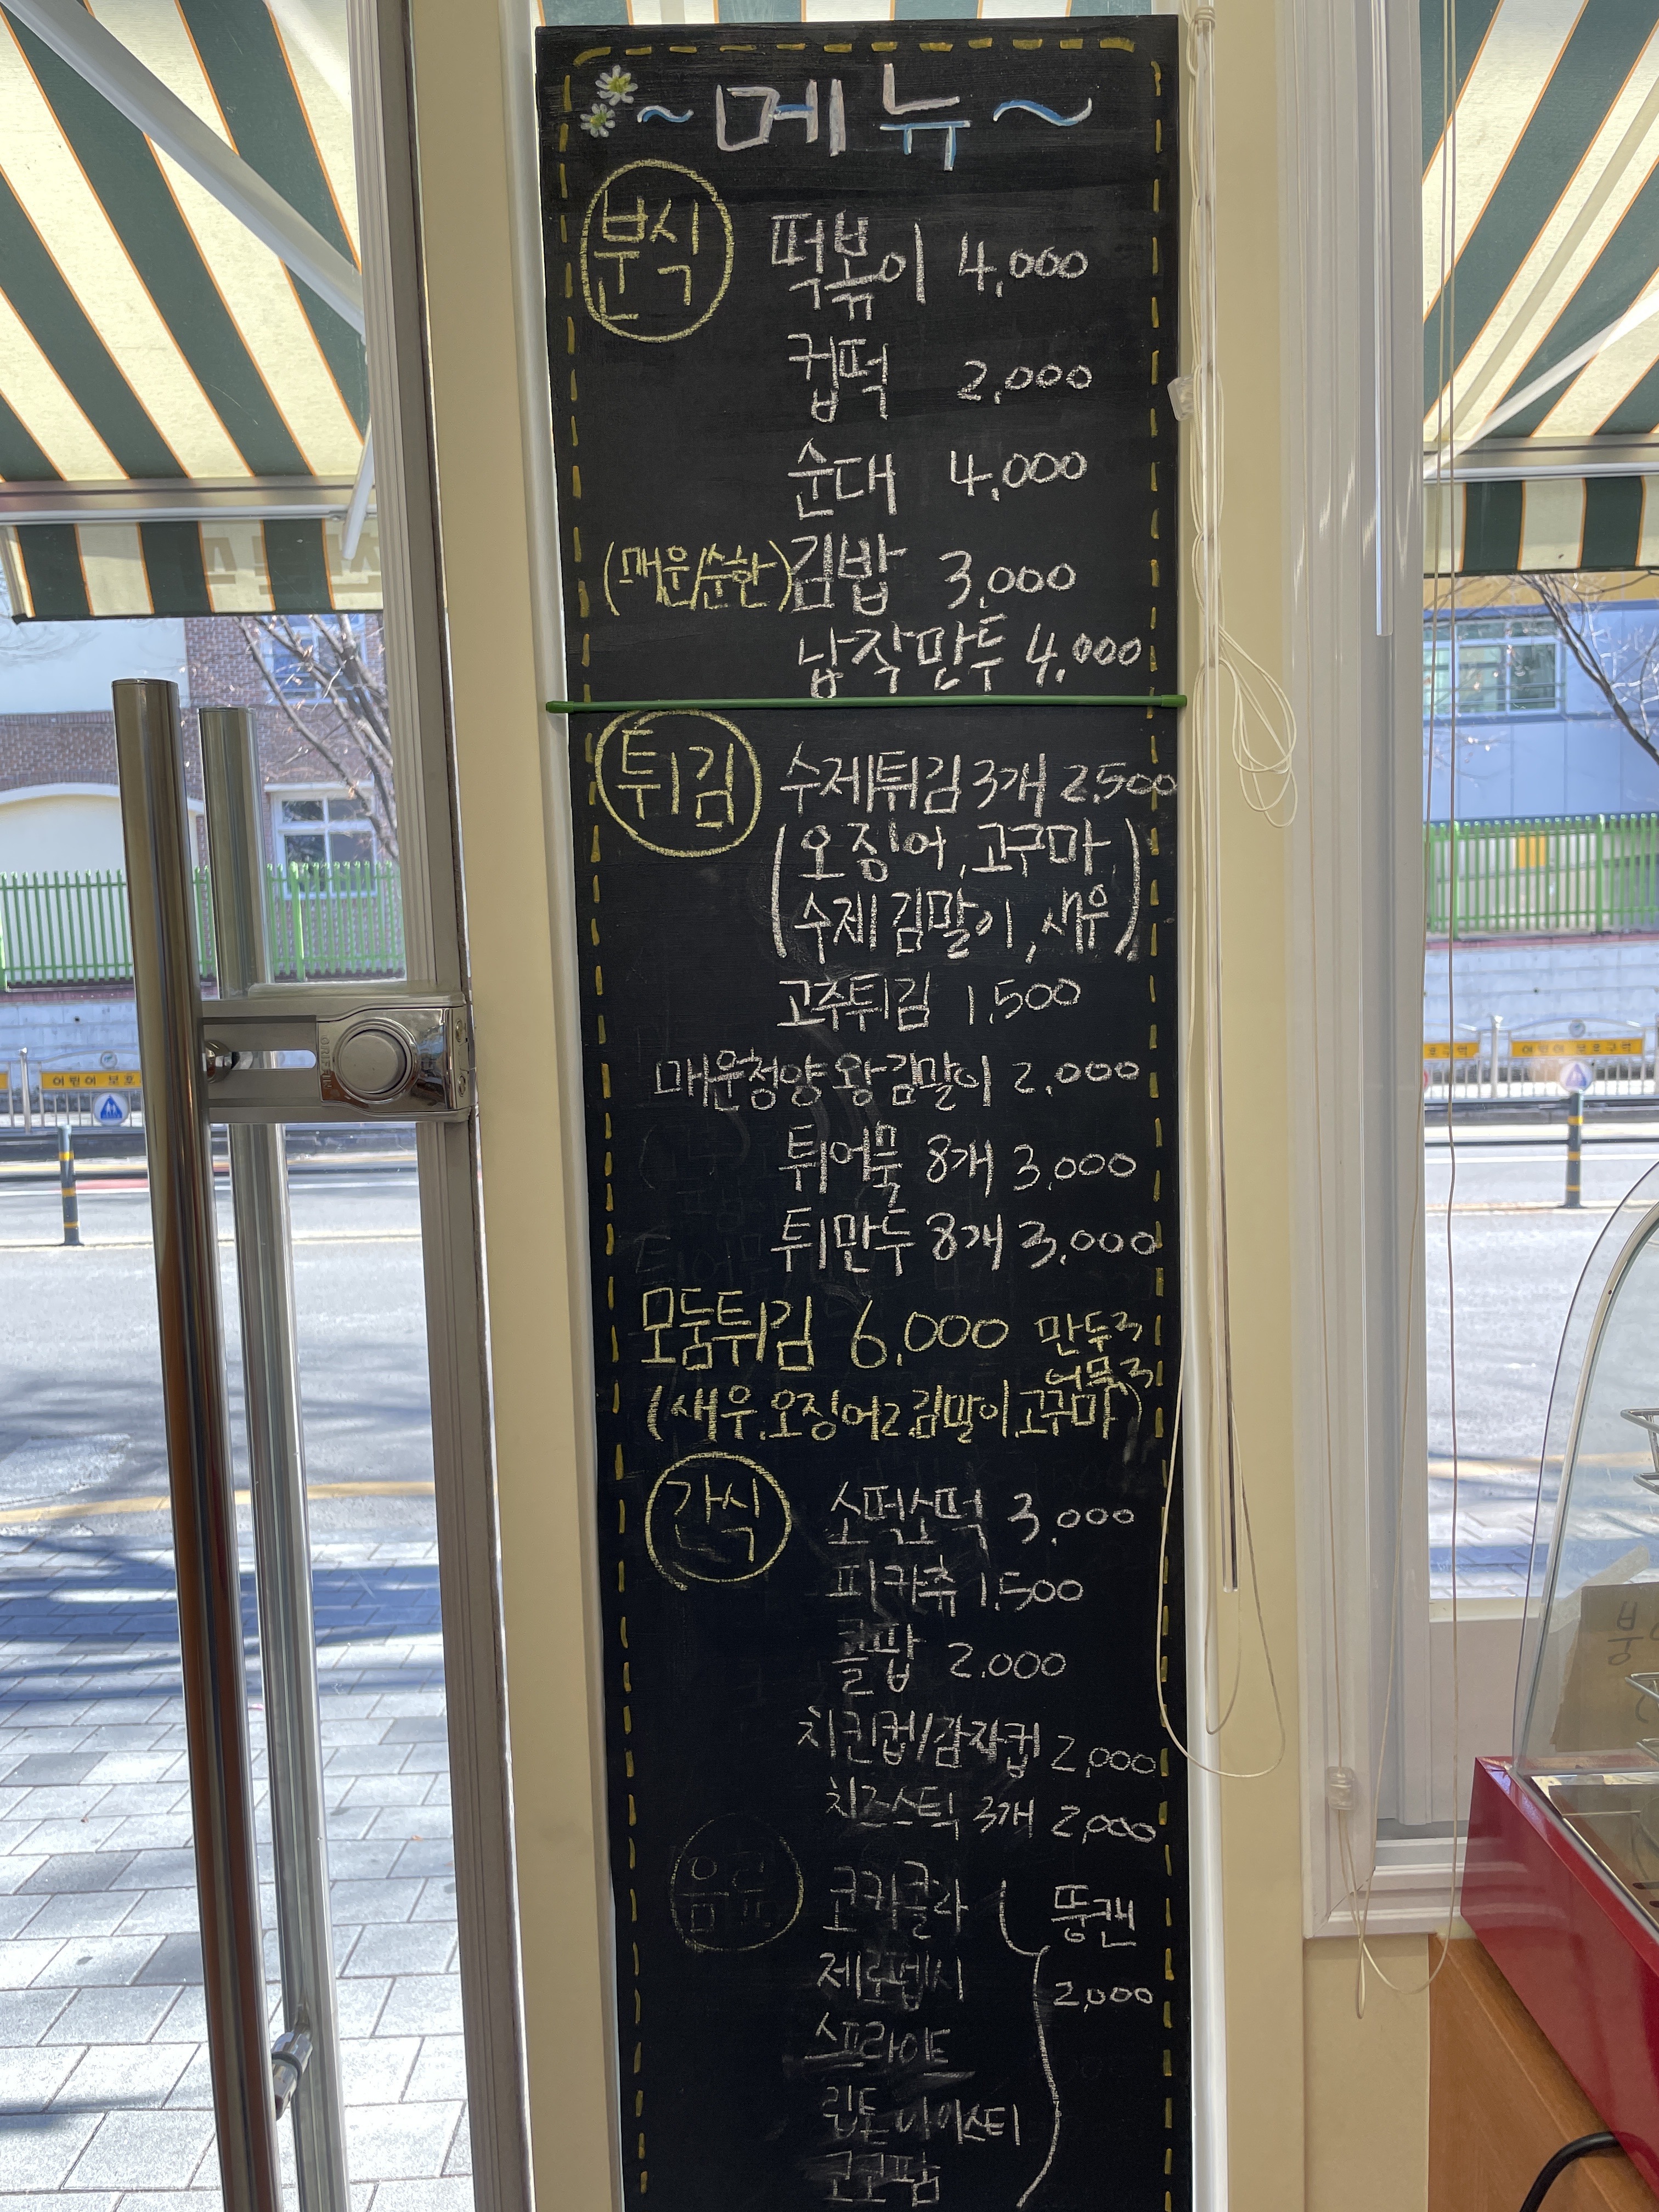 ~메뉴~
분식
떡볶이 4,000
컵떡 2,000
순대 4,000
(매운/순한)김밥 3,000
납작만두 4,000
튀김
수제튀김 3개 2,500
(오징어, 고구마,
수제 김말이, 새우)
고추튀김 1,500
매운청양왕김말이 2,000
튀어묵 8개 3,000
튀만두 8개 3,000
모둠튀김 6,000 만두3
어묵3
(새우,오징어2,김말이,고구마)
간식
소떡소떡 3,000
피카츄 1,500
콜팝 2.000
치킨컵/감자컵 2,000
치즈스틱 3개 2,000
음료
코카콜라
뚱캔
제로펩시
2,000
스프라이트
립톤아이스티
코코팜
어린이 보호
호구역
어린이 보호구역